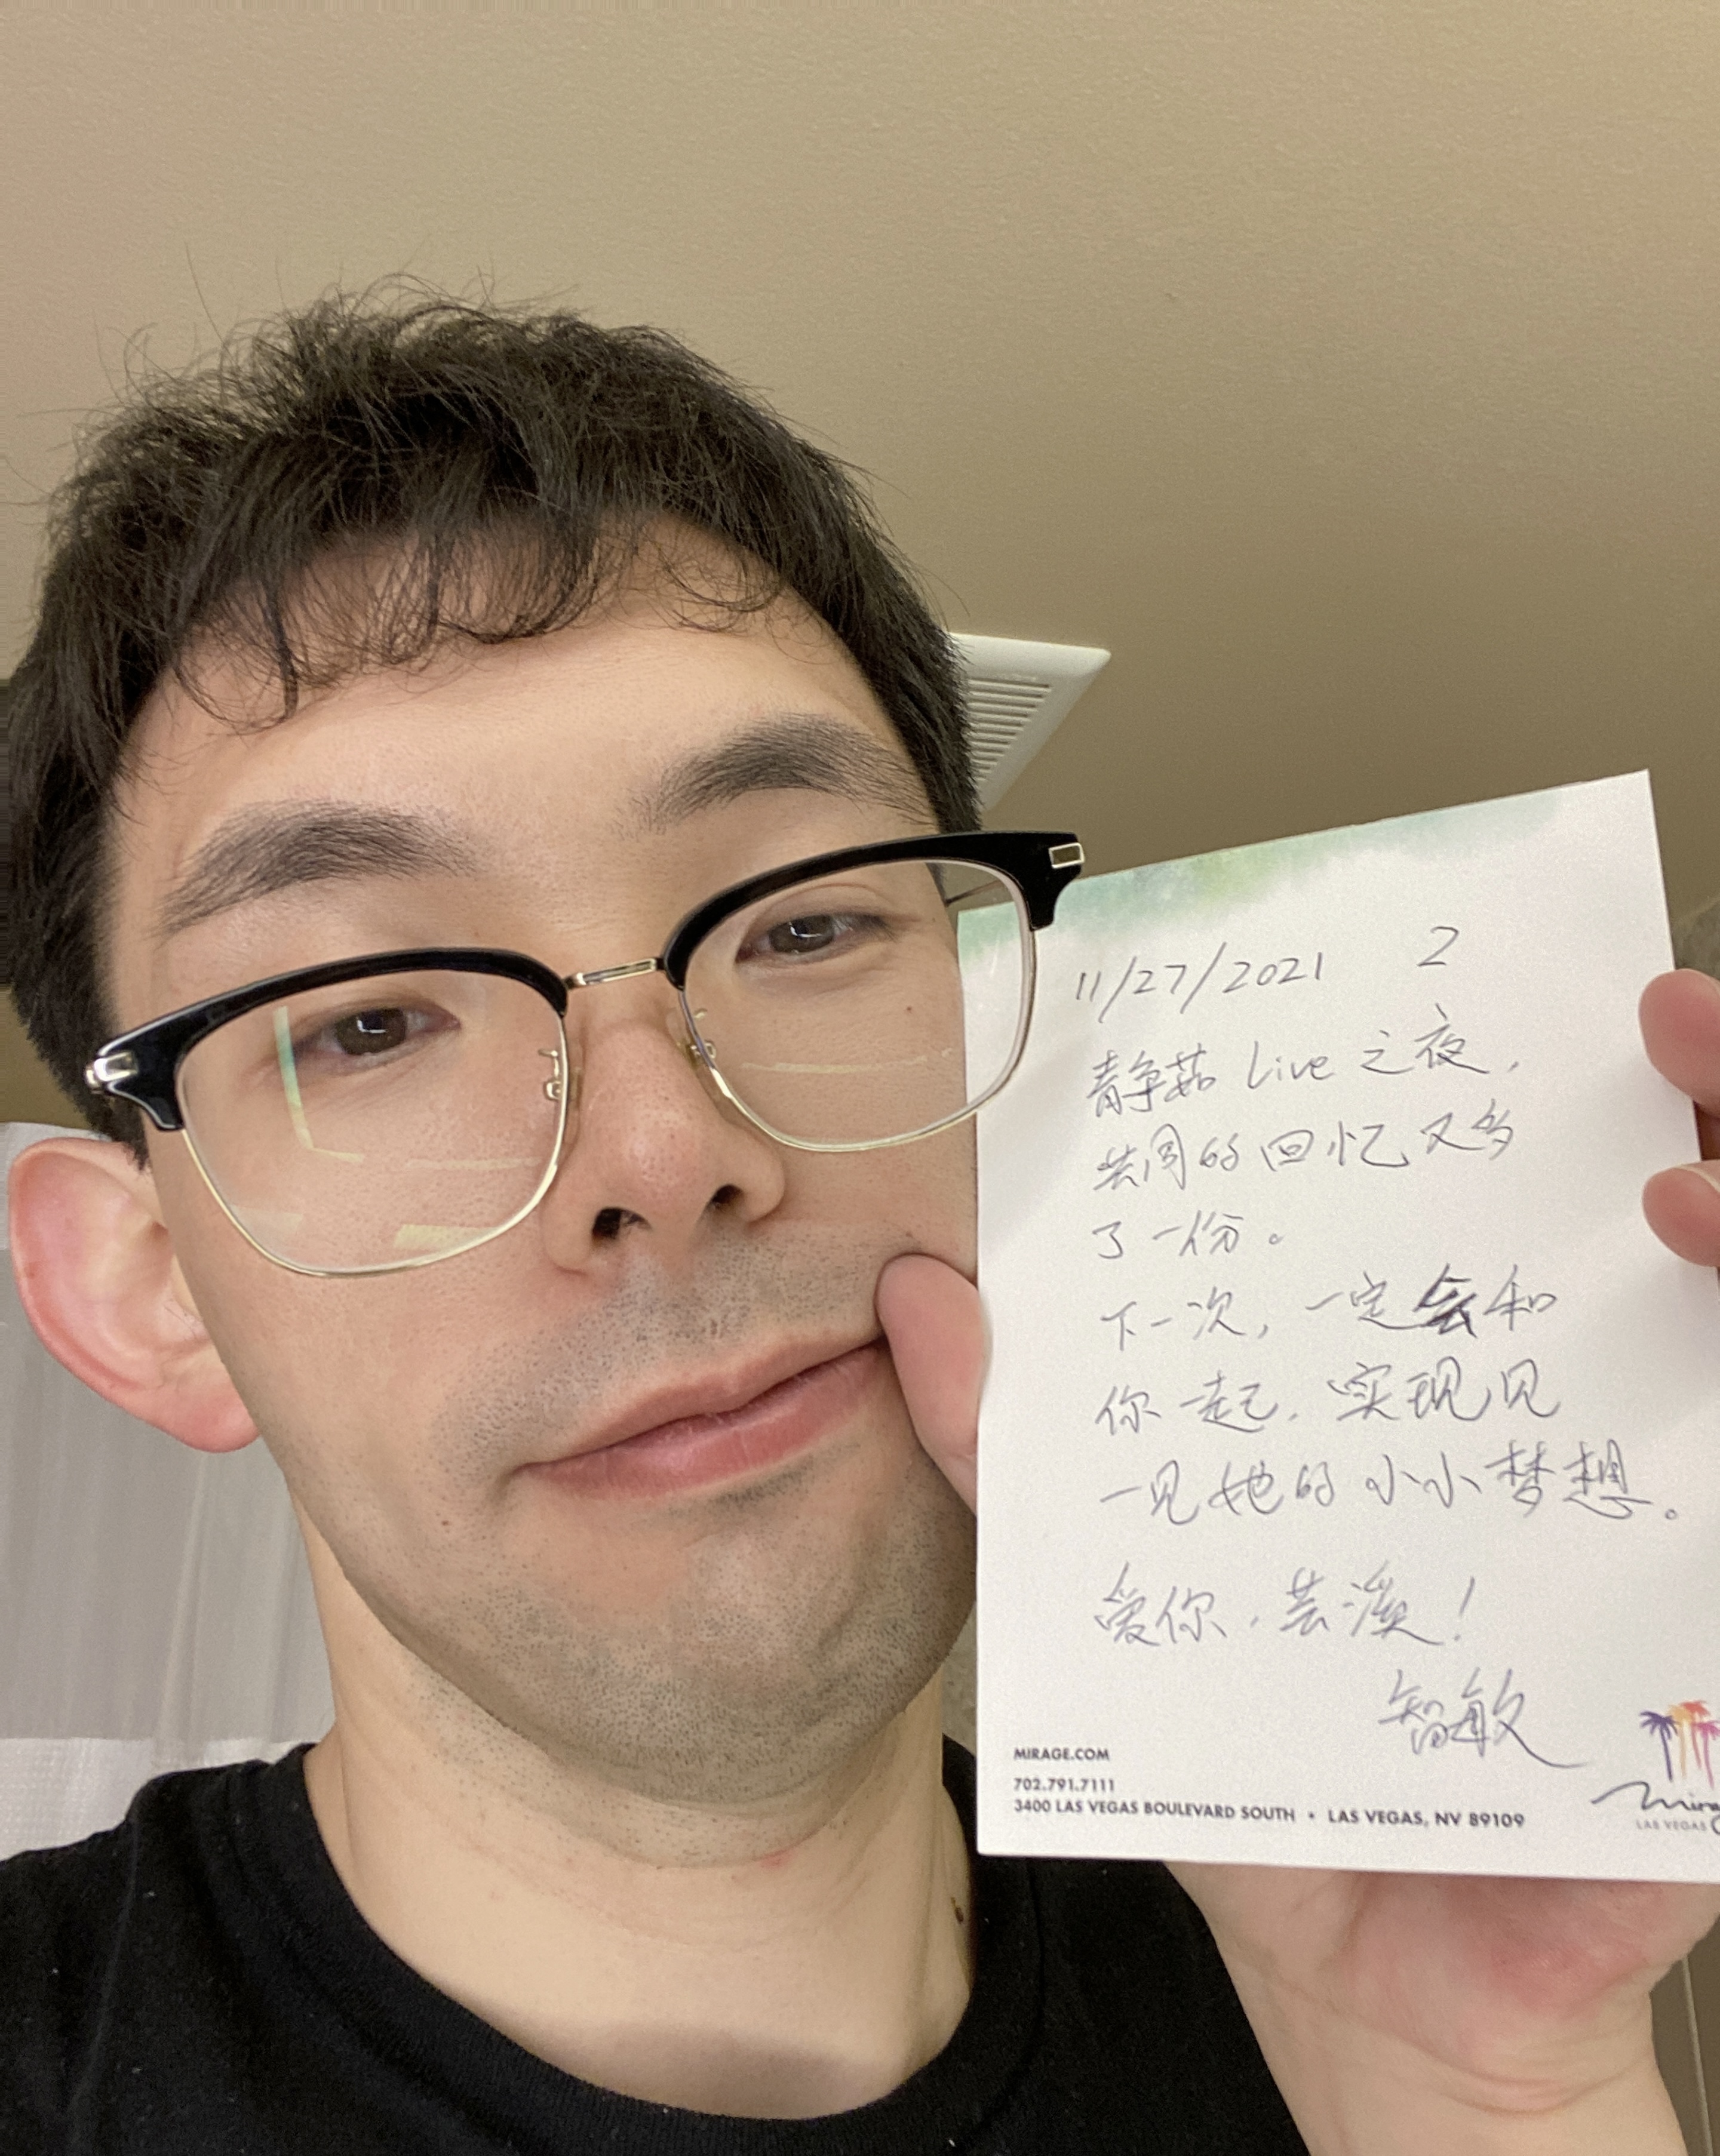 11/27/2021 2
静茹 Live 之夜，
共同的回忆又多
了一份。
下一次，一定会和
你一起，实现见
一见她的小小梦想。
爱你，芸溪！
智敏
MIRAGE.COM
702.791.7111
3400 LAS VEGAS BOULEVARD SOUTH • LAS VEGAS, NV 89109
LAS VEGAS